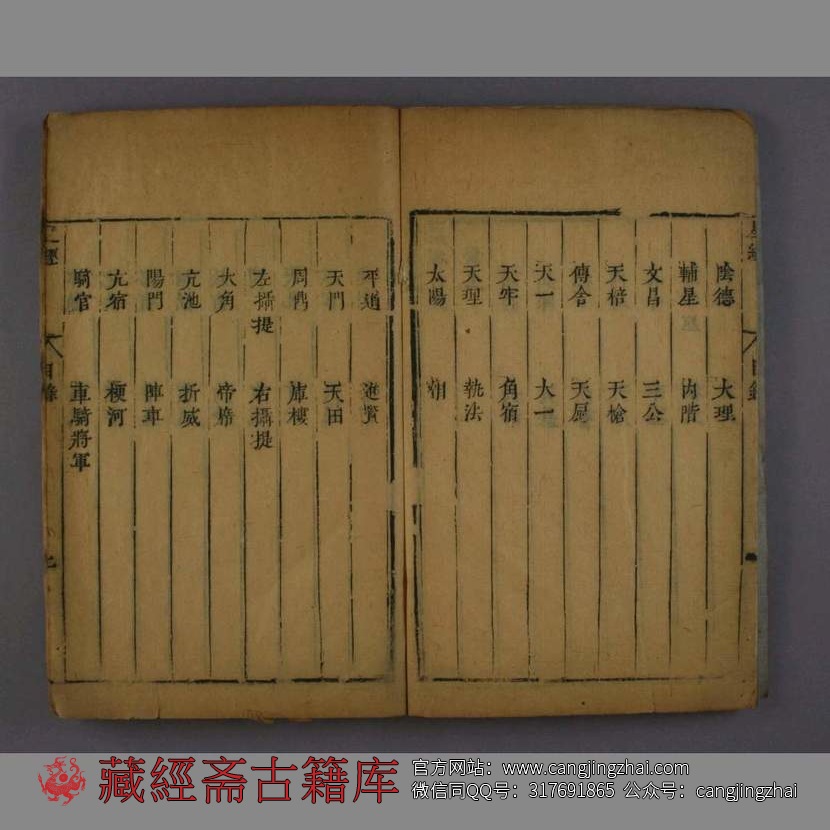 星經
目錄
陰德 大理
輔星 內階
文昌 三公
天棓 天槍
傳舍 天厨
天一 大一
天牢 角宿
天理 執法
太陽 相
平道 進賢
天門 天田
周鼎 庫樓
左攝提 右攝提
大角 帝席
亢池 折威
陽門 陣車
亢宿 梗河
騎官 車騎將軍
經
目錄
藏經斋古籍库
官方网站：www.cangjingzhai.com
微信同QQ号：317691865 公众号：cangjingzhai